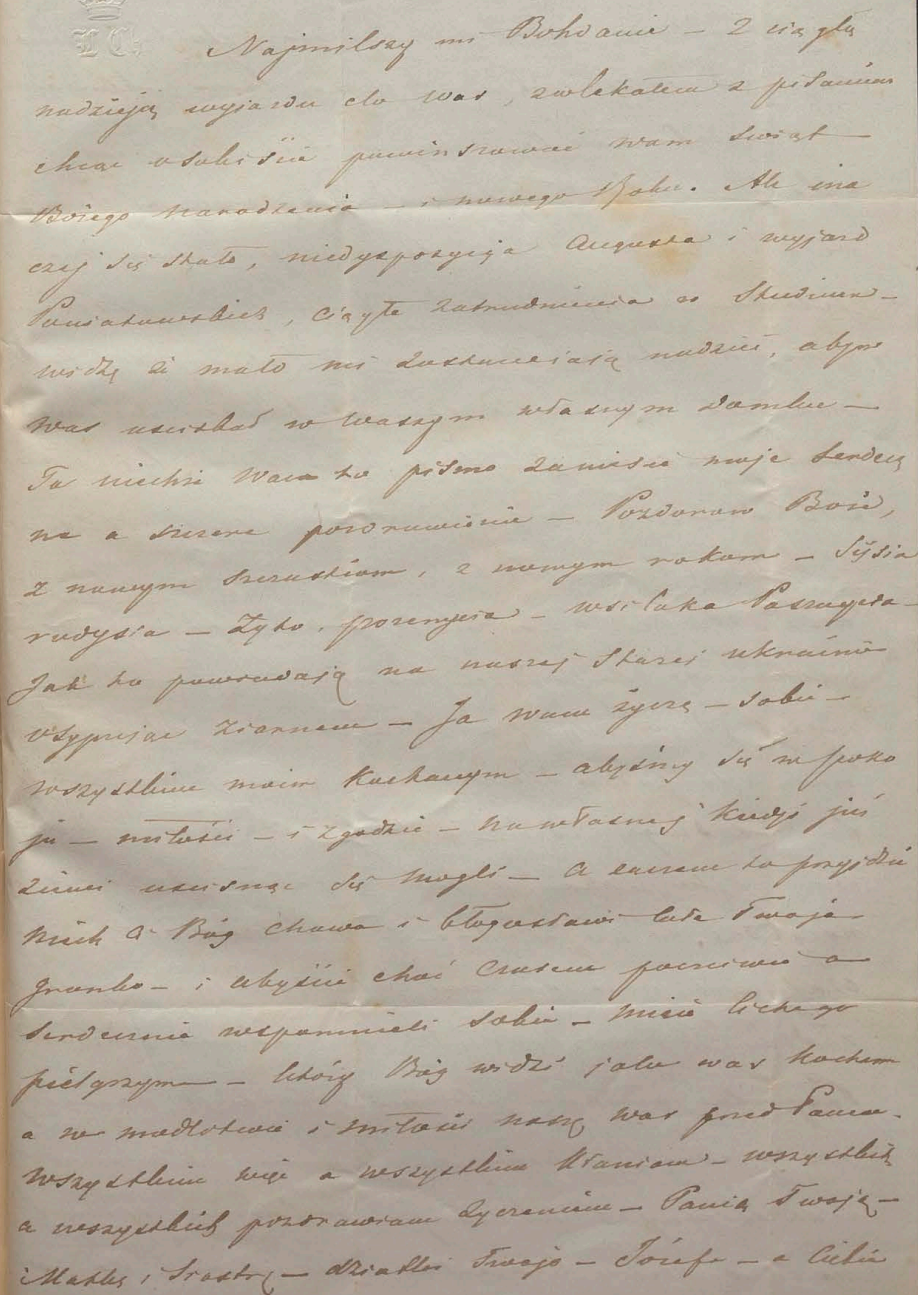 L C
Najmilszy mi Bohdanie – Z ciągłą
nadzieją wyjazdu do was, zwlekałem z pisaniem
chcąc osobiście powinszować wam Swiąt –
Bożego Narodzenia – i nowego Roku. Ale ina
czej się stało, niedyspozycya Augusta i wyjazd
Poniatowskich, ciągłe zatrudnienia ze
widzę że mało mi zostawiają nadziei, abym
was uściskał w Waszym własnym domku –
To niechże Wam to pismo zaniesie moje Serdecz
ne a szczere pozdrowienie – Pozdorow Boże,
Z nowym Szczastiom, z nowym rokom – Sijsia
rodysia – Żyto, pszenycia – wsilaka Pasznycia –
Jak to powiadają na naszej Starej ukrainie
osypując Ziarnem – Ja wam życzę – sobie –
wszystkim moim Kochanym – abyśmy się w poko
ju – miłości – i zgodzie – na własnej kiedyś już
ziemi uścisnąć się mogli – A zaczem to przyjdzie
Niech Cię Bóg chowa i błogosławi całe Twoje
gronko – i abyście choć Czasem poczciwie a
Serdecznie wspomnieli sobie – Mnie lichego
pielgrzyma – który Bóg widzi jak was kocham
a w modlitwie i miłości noszę was przed Panem.
Wszystkim więc a wszystkim kłaniam – wszystkich
a wszystkich pozdrawiam życzeniem – Panią Twoją –
i Matkę i Siostrę – dziatki Twoje – Józefa – a Ciebie